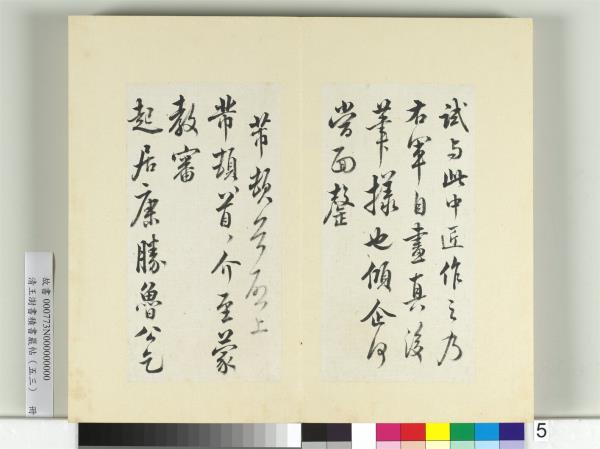 試与此中匠作之乃
右軍自畫真後
筆樣也傾企何
當面盡
芾頓首再啓上
芾頓首〻介至蒙
教審
起居康勝魯公乞
故書 000773N000000000
清王澍書積書巖帖(五三) 冊
5